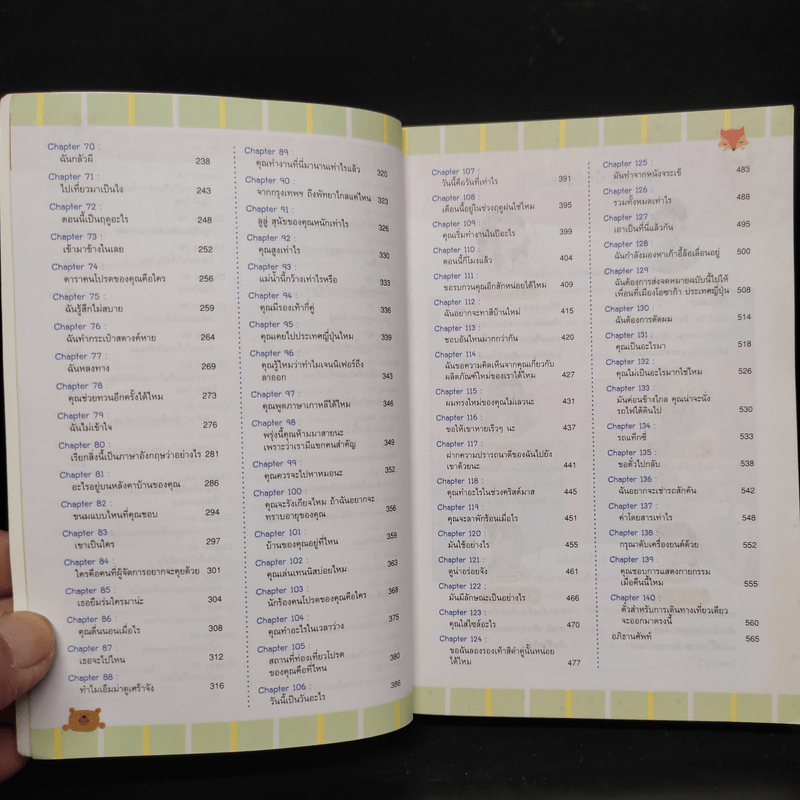 Chapter 70 :
ฉันกลัวผี 238
Chapter 71 :
ไปเที่ยวมาเป็นไง 243
Chapter 72 :
ตอนนี้เป็นฤดูอะไร 248
Chapter 73 :
เข้ามาข้างในเลย 252
Chapter 74 :
ดาราคนโปรดของคุณคือใคร 256
Chapter 75 :
ฉันรู้สึกไม่สบาย 259
Chapter 76 :
ฉันทำกระเป๋าสตางค์หาย 264
Chapter 77 :
ฉันหลงทาง 269
Chapter 78 :
คุณช่วยทวนอีกครั้งได้ไหม 273
Chapter 79 :
ฉันไม่เข้าใจ 276
Chapter 80 :
เรียกสิ่งนี้เป็นภาษาอังกฤษว่าอย่างไร 281
Chapter 81 :
อะไรอยู่บนหลังคาบ้านของคุณ 286
Chapter 82 :
ขนมแบบไหนที่คุณชอบ 294
Chapter 83 :
เขาเป็นใคร 297
Chapter 84 :
ใครคือคนที่ผู้จัดการอยากจะคุยด้วย 301
Chapter 85 :
เธอยืมร่มใครมาน่ะ 304
Chapter 86 :
คุณตื่นนอนเมื่อไร 308
Chapter 87 :
เธอจะไปไหน 312
Chapter 88 :
ทำไมเอ็มม่าดูเศร้าจัง 316
Chapter 89 :
คุณทำงานที่นี่มานานเท่าไรแล้ว 320
Chapter 90 :
จากกรุงเทพฯ ถึงพัทยาไกลแค่ไหน 323
Chapter 91 :
ลูลู่ สุนัขของคุณหนักเท่าไร 326
Chapter 92 :
คุณสูงเท่าไร 330
Chapter 93 :
แม่น้ำนี้กว้างเท่าไรหรือ 333
Chapter 94 :
คุณมีรองเท้ากี่คู่ 336
Chapter 95 :
คุณเคยไปประเทศญี่ปุ่นไหม 339
Chapter 96 :
คุณรู้ไหมว่าทำไมเจนนิเฟอร์ถึง
ลาออก 343
Chapter 97 :
คุณพูดภาษาเกาหลีได้ไหม 346
Chapter 98 :
พรุ่งนี้คุณห้ามมาสายนะ
เพราะว่าเรามีแขกคนสำคัญ 349
Chapter 99 :
คุณควรจะไปหาหมอนะ 352
Chapter 100 :
คุณจะรังเกียจไหม ถ้าฉันอยากจะ
ทราบอายุของคุณ 356
Chapter 101 :
บ้านของคุณอยู่ที่ไหน 359
Chapter 102 :
คุณเล่นเทนนิสบ่อยไหม 363
Chapter 103 :
นักร้องคนโปรดของคุณคือใคร 368
Chapter 104 :
คุณทำอะไรในเวลาว่าง 375
Chapter 105 :
สถานที่ท่องเที่ยวโปรด
ของคุณคือที่ไหน 380
Chapter 106 :
วันนี้เป็นวันอะไร 386
Chapter 107 :
วันนี้คือวันที่เท่าไร 391
Chapter 108 :
เดือนนี้อยู่ในช่วงฤดูฝนใช่ไหม 395
Chapter 109 :
คุณเริ่มทำงานในปีอะไร 399
Chapter 110 :
ตอนนี้กี่โมงแล้ว 404
Chapter 111 :
ขอรบกวนคุณอีกสักหน่อยได้ไหม 409
Chapter 112 :
ฉันอยากจะทาสีบ้านใหม่ 415
Chapter 113 :
ชอบอันไหนมากกว่ากัน 420
Chapter 114 :
ฉันขอความคิดเห็นจากคุณเกี่ยวกับ
ผลิตภัณฑ์ใหม่ของเราได้ไหม 427
Chapter 115 :
ผมทรงใหม่ของคุณไม่เลวนะ 431
Chapter 116 :
ขอให้เขาหายเร็วๆ นะ 437
Chapter 117 :
ฝากความปรารถนาดีของฉันไปยัง
เขาด้วยนะ 441
Chapter 118 :
คุณทำอะไรในช่วงคริสต์มาส 445
Chapter 119 :
คุณจะลาพักร้อนเมื่อไร 451
Chapter 120 :
มันใช้อย่างไร 455
Chapter 121 :
ดูน่าอร่อยจัง 461
Chapter 122 :
มันมีลักษณะเป็นอย่างไร 466
Chapter 123 :
คุณใส่ไซส์อะไร 470
Chapter 124 :
ขอฉันลองรองเท้าสีดำคู่นั้นหน่อย
ได้ไหม 477
Chapter 125 :
มันทำจากหนังจระเข้ 483
Chapter 126 :
รวมทั้งหมดเท่าไร 488
Chapter 127 :
เอาเป็นที่นี่แล้วกัน 495
Chapter 128 :
ฉันกำลังมองหาเก้าอี้ล้อเลื่อนอยู่ 500
Chapter 129 :
ฉันต้องการส่งจดหมายฉบับนี้ไปให้
เพื่อนที่เมืองโอซาก้า ประเทศญี่ปุ่น 508
Chapter 130 :
ฉันต้องการตัดผม 514
Chapter 131 :
คุณเป็นอะไรมา 518
Chapter 132 :
คุณไม่เป็นอะไรมากใช่ไหม 526
Chapter 133 :
มันค่อนข้างไกล คุณน่าจะนั่ง
รถไฟใต้ดินไป 530
Chapter 134 :
รถแท็กซี่ 533
Chapter 135 :
ขอตั๋วไปกลับ 538
Chapter 136 :
ฉันอยากจะเช่ารถสักคัน 542
Chapter 137 :
ค่าโดยสารเท่าไร 548
Chapter 138 :
กรุณาดับเครื่องยนต์ด้วย 552
Chapter 139 :
คุณชอบการแสดงกายกรรม
เมื่อคืนนี้ไหม 555
Chapter 140 :
ตั๋วสำหรับการเดินทางเที่ยวเดียว
จะออกมาตรงนี้ 560
อภิธานศัพท์ 565